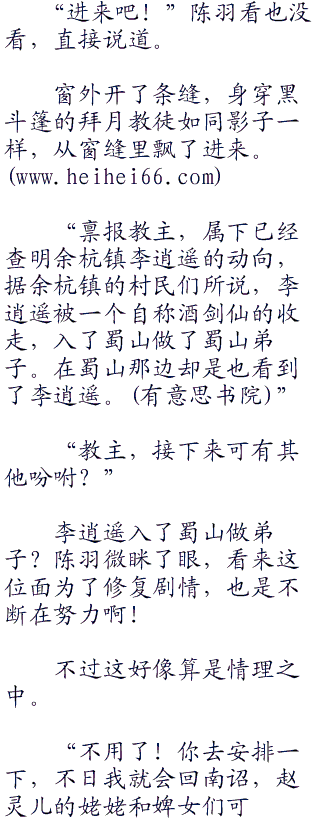 “进来吧！”陈羽看也没
看，直接说道。
窗外开了条缝，身穿黑
斗篷的拜月教徒如同影子一
样，从窗缝里飘了进来。
(www.heihei66.com)
“禀报教主，属下已经
查明余杭镇李逍遥的动向，
据余杭镇的村民们所说，李
逍遥被一个自称酒剑仙的收
走，入了蜀山做了蜀山弟
子。在蜀山那边却是也看到
了李逍遥。(有意思书院)”
“教主，接下来可有其
他吩咐？”
李逍遥入了蜀山做弟
子？陈羽微眯了眼，看来这
位面为了修复剧情，也是不
断在努力啊！
不过这好像算是情理之
中。
“不用了！你去安排一
下，不日我就会回南诏，赵
灵儿的姥姥和婢女们可